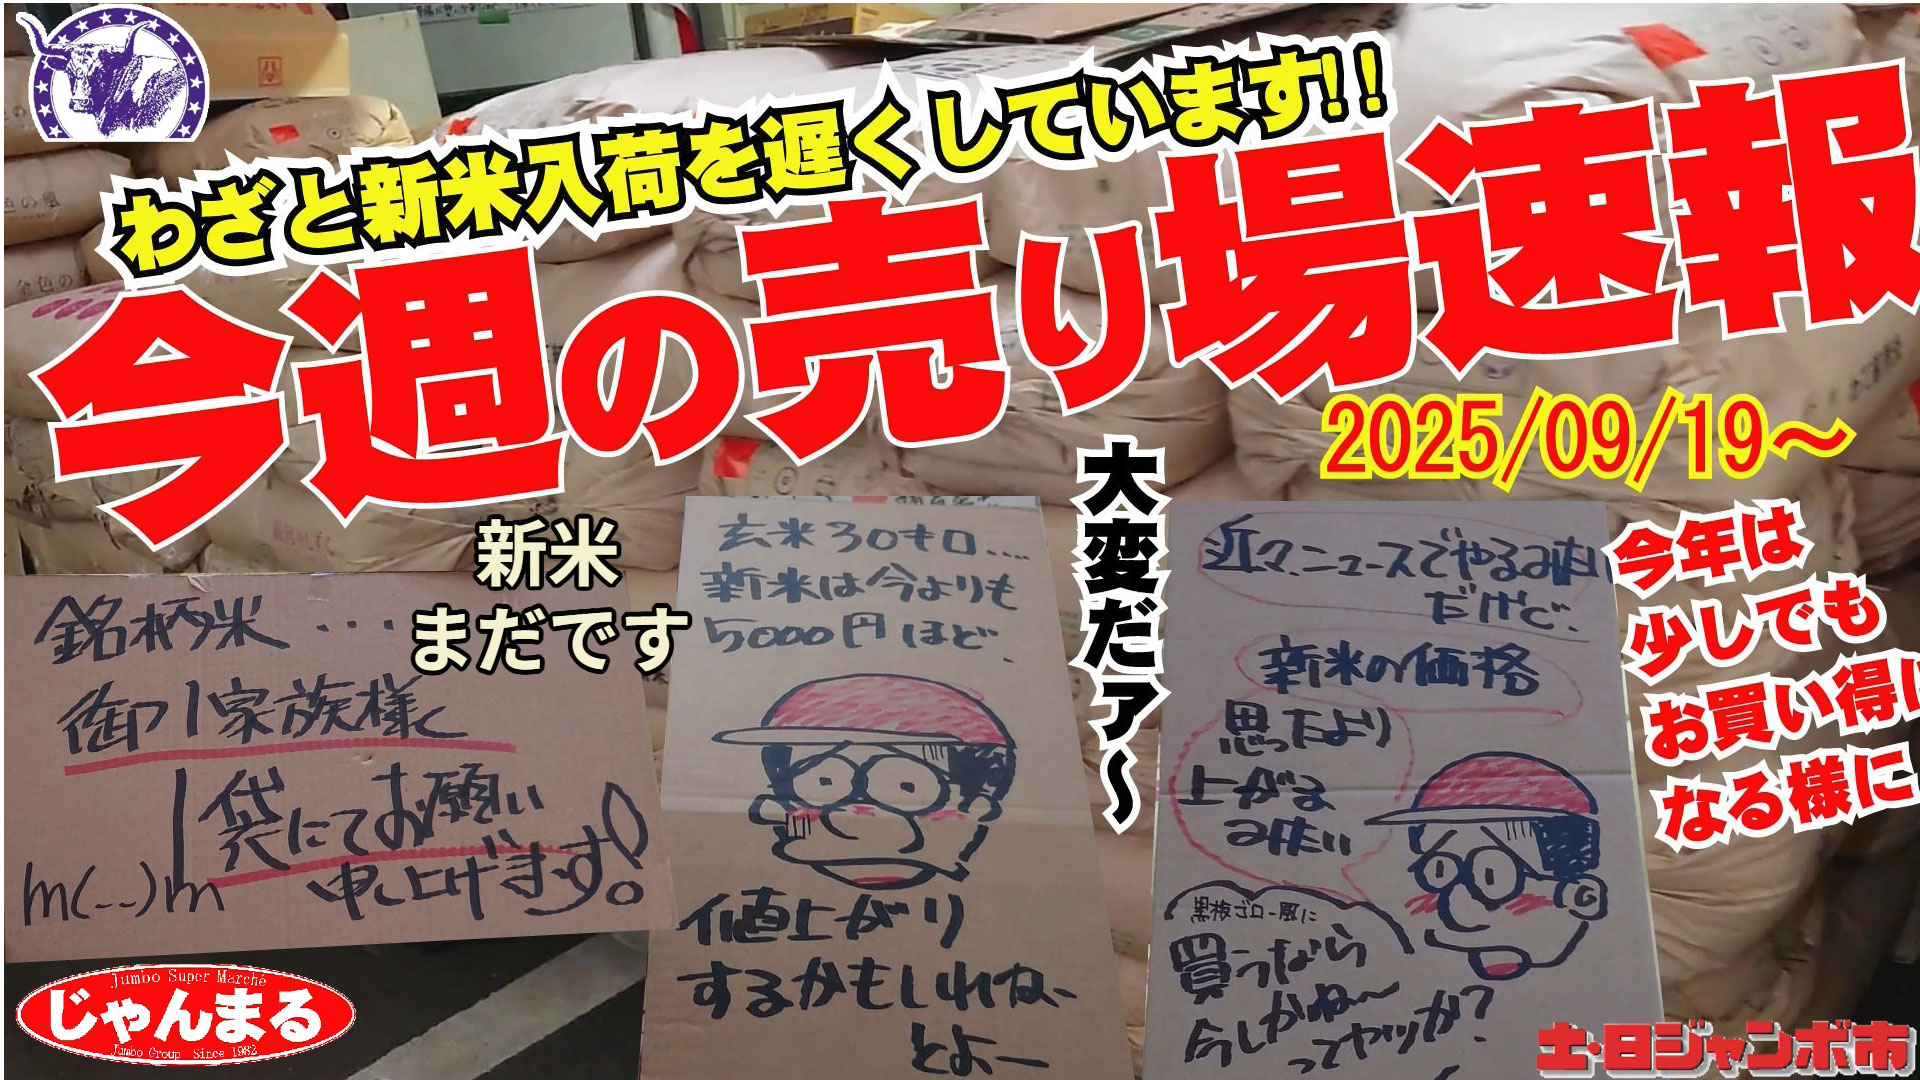 わざと新米入荷を遅くしています!!
今週の売り場速報
2025/09/19～
大変だァ～
今年は
少しでも
お買い得に
なる様に
新米
まだです
銘柄米...
御1家族様
1袋にてお願い
申し上げます!
m(..)m
玄米30キロ....
新米は今よりも
5000円ほど.
値上がり
するかもしれね
とよー
近々、ニュースでやるみたい
だけど、
新米の価格
思ったより
上がる
みたい
黒板ゴロー風に
買うなら
今しかね～
ってヤツか?
Jumbo Super Marché
じゃんまる
Jumbo Group Since 1982
土・日ジャンボ市